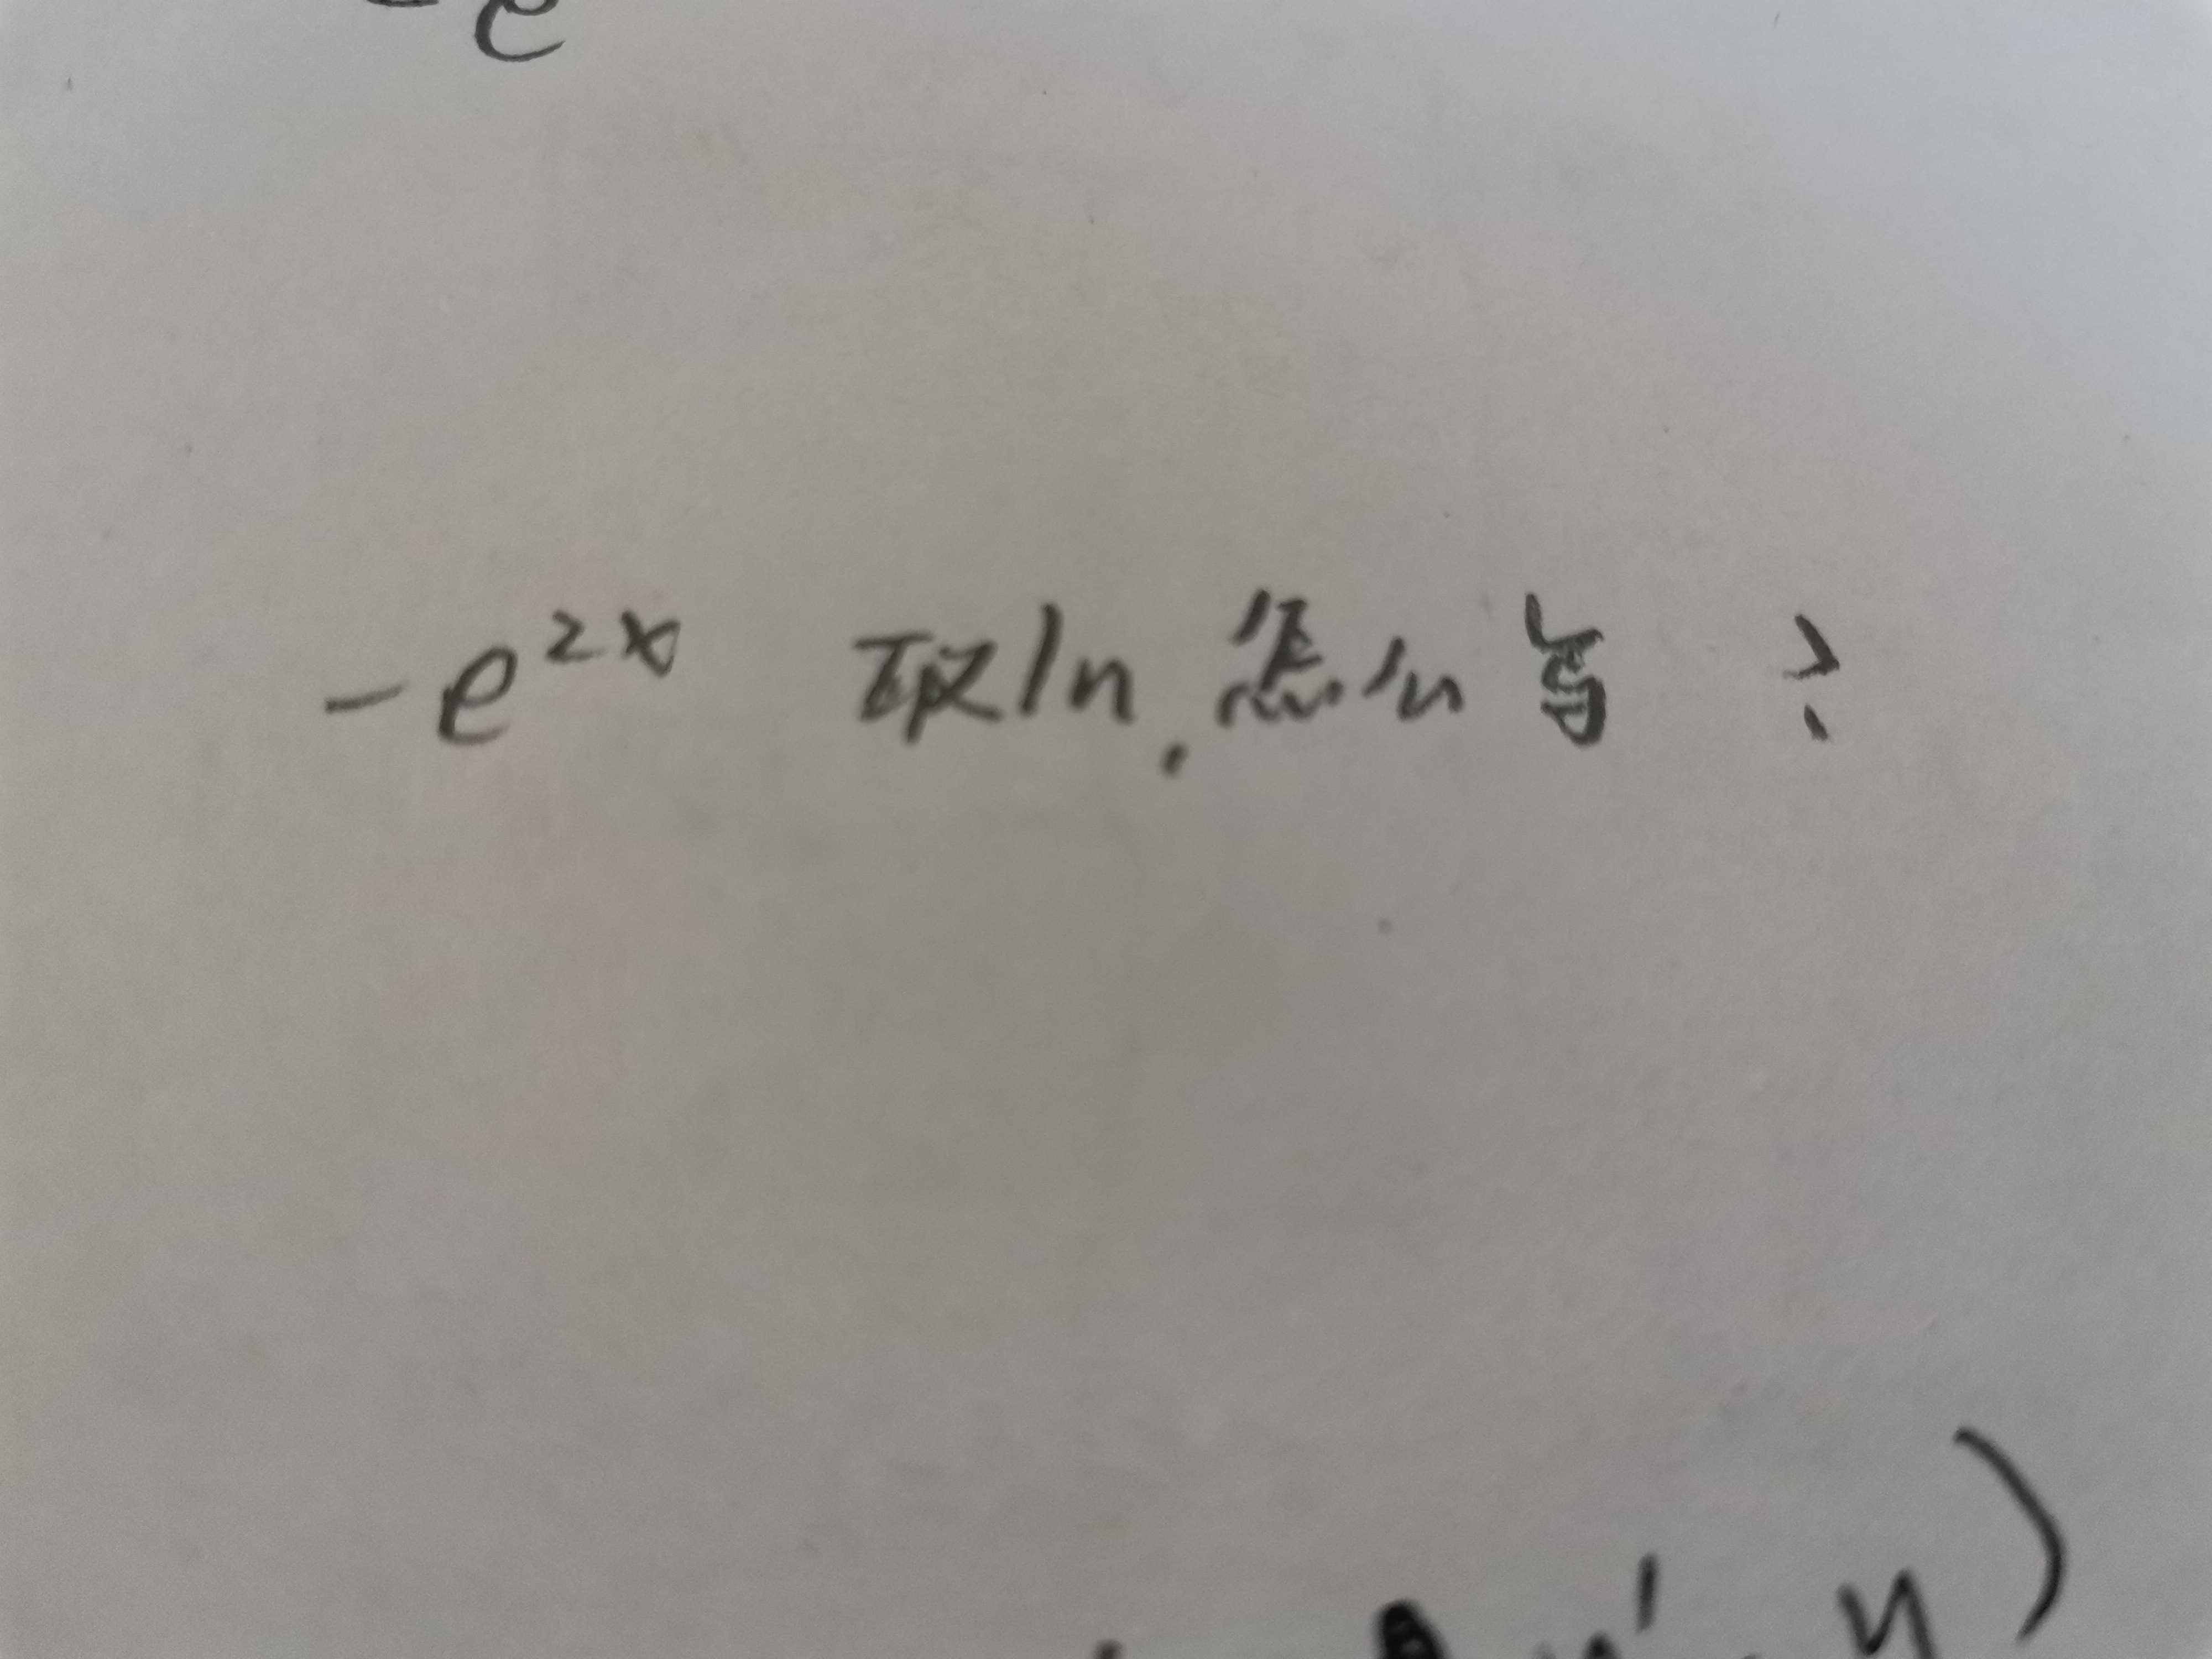 -e
-e²ˣ 取ln.怎么写?
y)